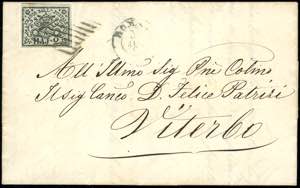 BAJ. 2
ROMA
All' Illmo Sig Pne Colmo
Il Sig Canco D. Felice Patrizi
Viterbo